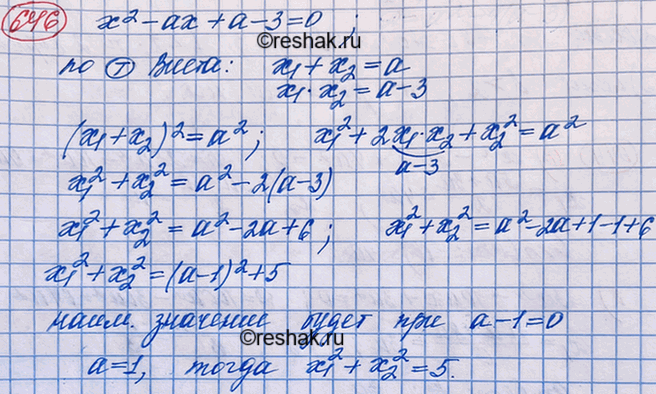 646 x² - ax + a - 3 = 0 ;
©reshak.ru
по Т Виета: x₁ + x₂ = a
x₁ · x₂ = a - 3
(x₁ + x₂)² = a² ; x₁² + 2x₁·x₂ + x₂² = a²
a-3
x₁² + x₂² = a² - 2(a-3)
x₁² + x₂² = a² - 2a + 6 ; x₁² + x₂² = a² - 2a + 1 - 1 + 6
x₁² + x₂² = (a-1)² + 5
наим. значение будет при a - 1 = 0
©reshak.ru
a = 1, тогда x₁² + x₂² = 5.